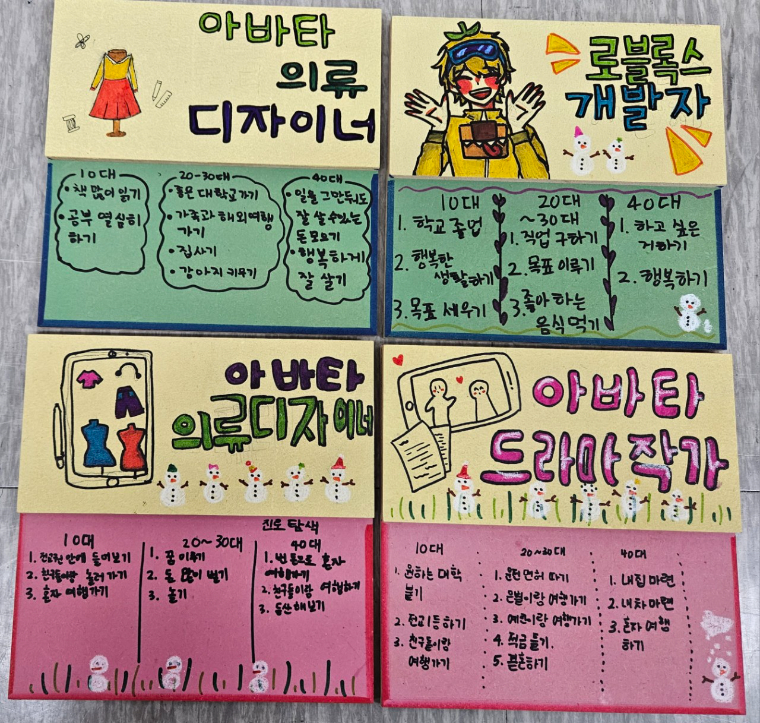 아바타
의류
디자이너
10대
• 책 많이 읽기
• 공부 열심히
하기
20-30대
• 좋은 대학교가기
• 가족과 해외여행
가기
• 집사기
• 강아지 키우기
40대
• 일을 그만둬도
잘 살 수 있는
돈 모으기
• 행복하게
잘 살기
로블록스
개발자
10대
1. 학교 졸업
2. 행복한
생활하기
3. 목표 세우기
20대
~30대
1. 직업 구하기
2. 목표 이루기
3. 좋아하는
음식 먹기
40대
1. 하고 싶은
거하기
2. 행복하기
아바타
의류디자이너
진로 탐색
10대
1. 전교권 안에 들어보기
2. 친구들이랑 놀러 가기
3. 혼자 여행가기
20~30대
1. 꿈 이루기
2. 돈 많이 벌기
3. 놀기
40대
1. 번 돈으로 혼자
여행가기
2. 친구들이랑 여행하기
3. 등산 해보기
아바타
드라마 작가
10대
1. 원하는 대학
붙기
2. 전교 1등하기
3. 친구들이랑
여행가기
20~30대
1. 운전 면허 따기
2. 은별이랑 여행가기
3. 예린이랑 여행가기
4. 적금 들기.
5. 결혼하기
40대
1. 내집 마련
2. 내차 마련
3. 혼자 여행
하기